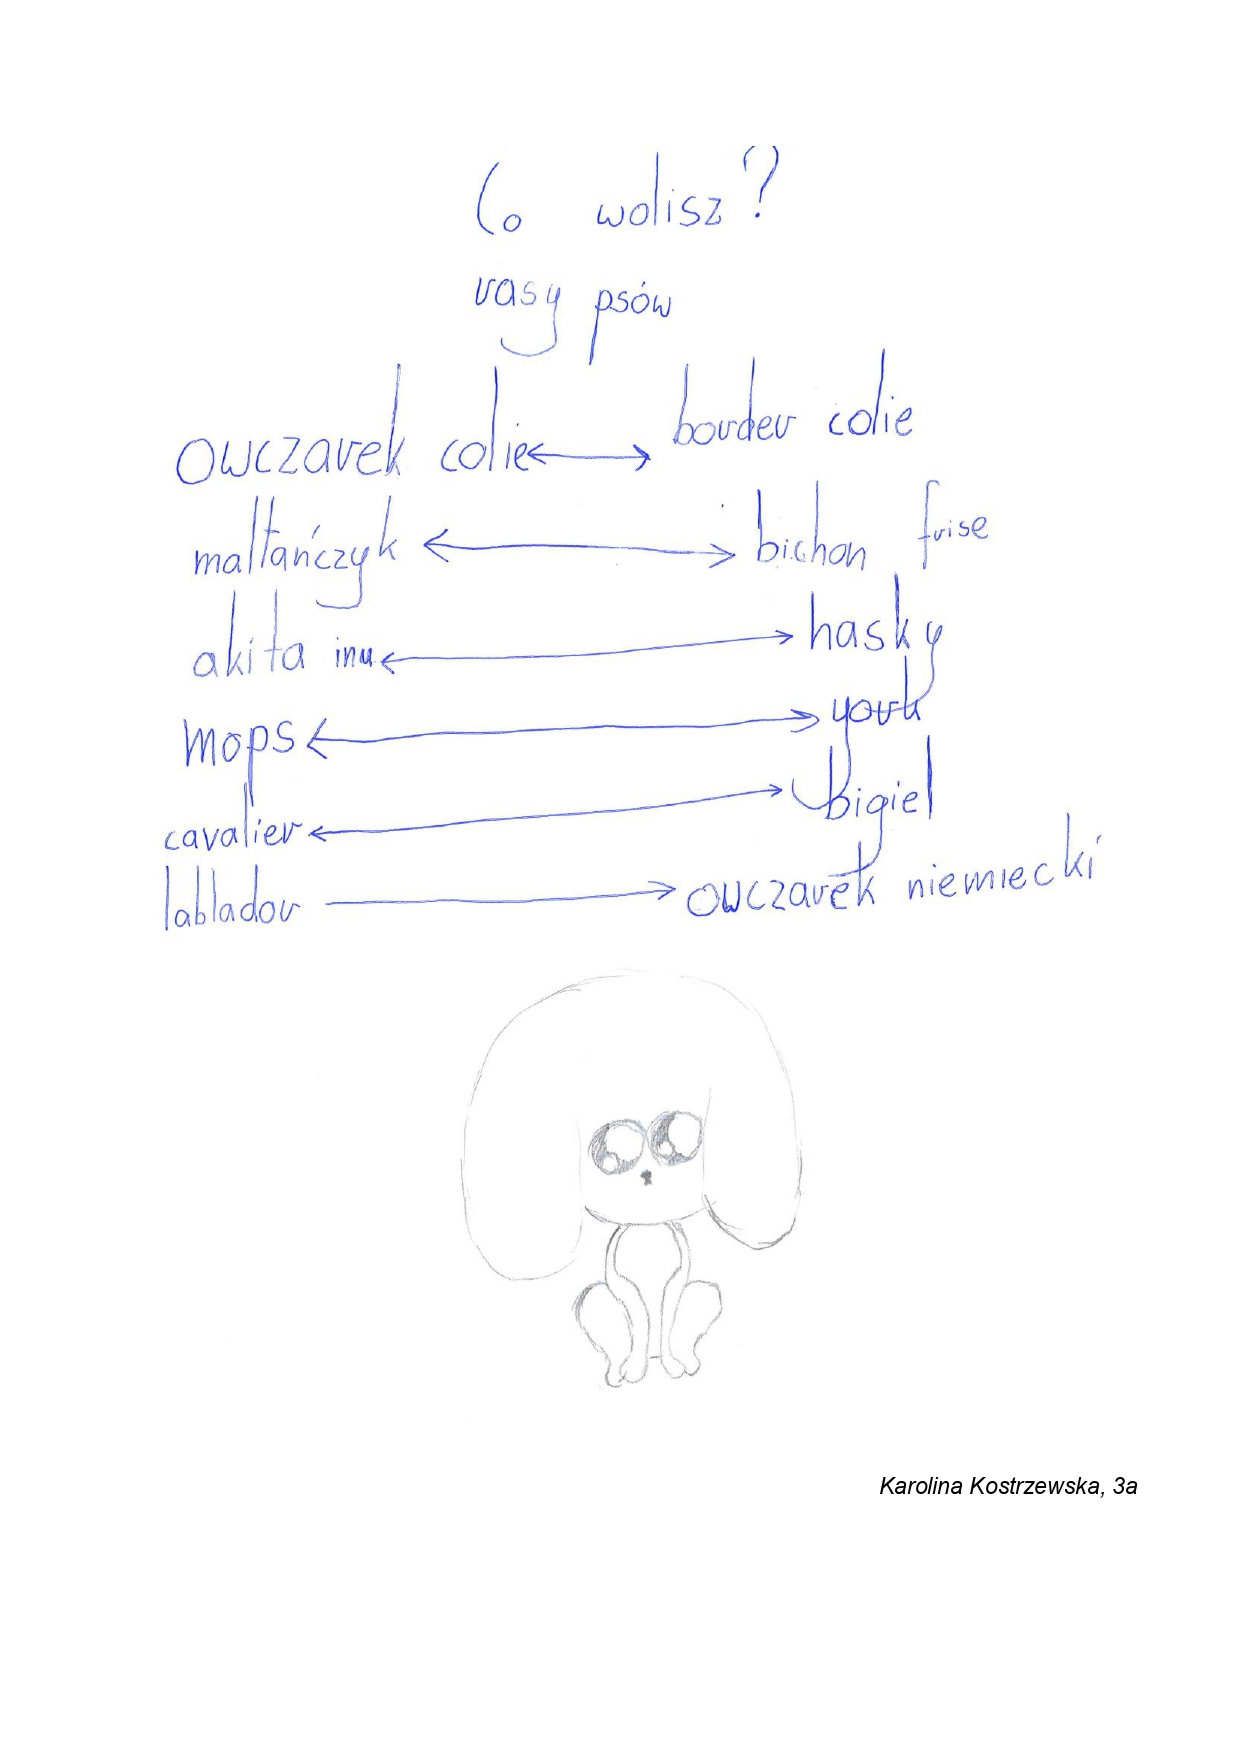 Co wolisz?
rasy psów
owczarek colie border colie
maltańczyk bichon frise
akita inu hasky
mops york
cavalier bigiel
lablador owczarek niemiecki
Karolina Kostrzewska, 3a